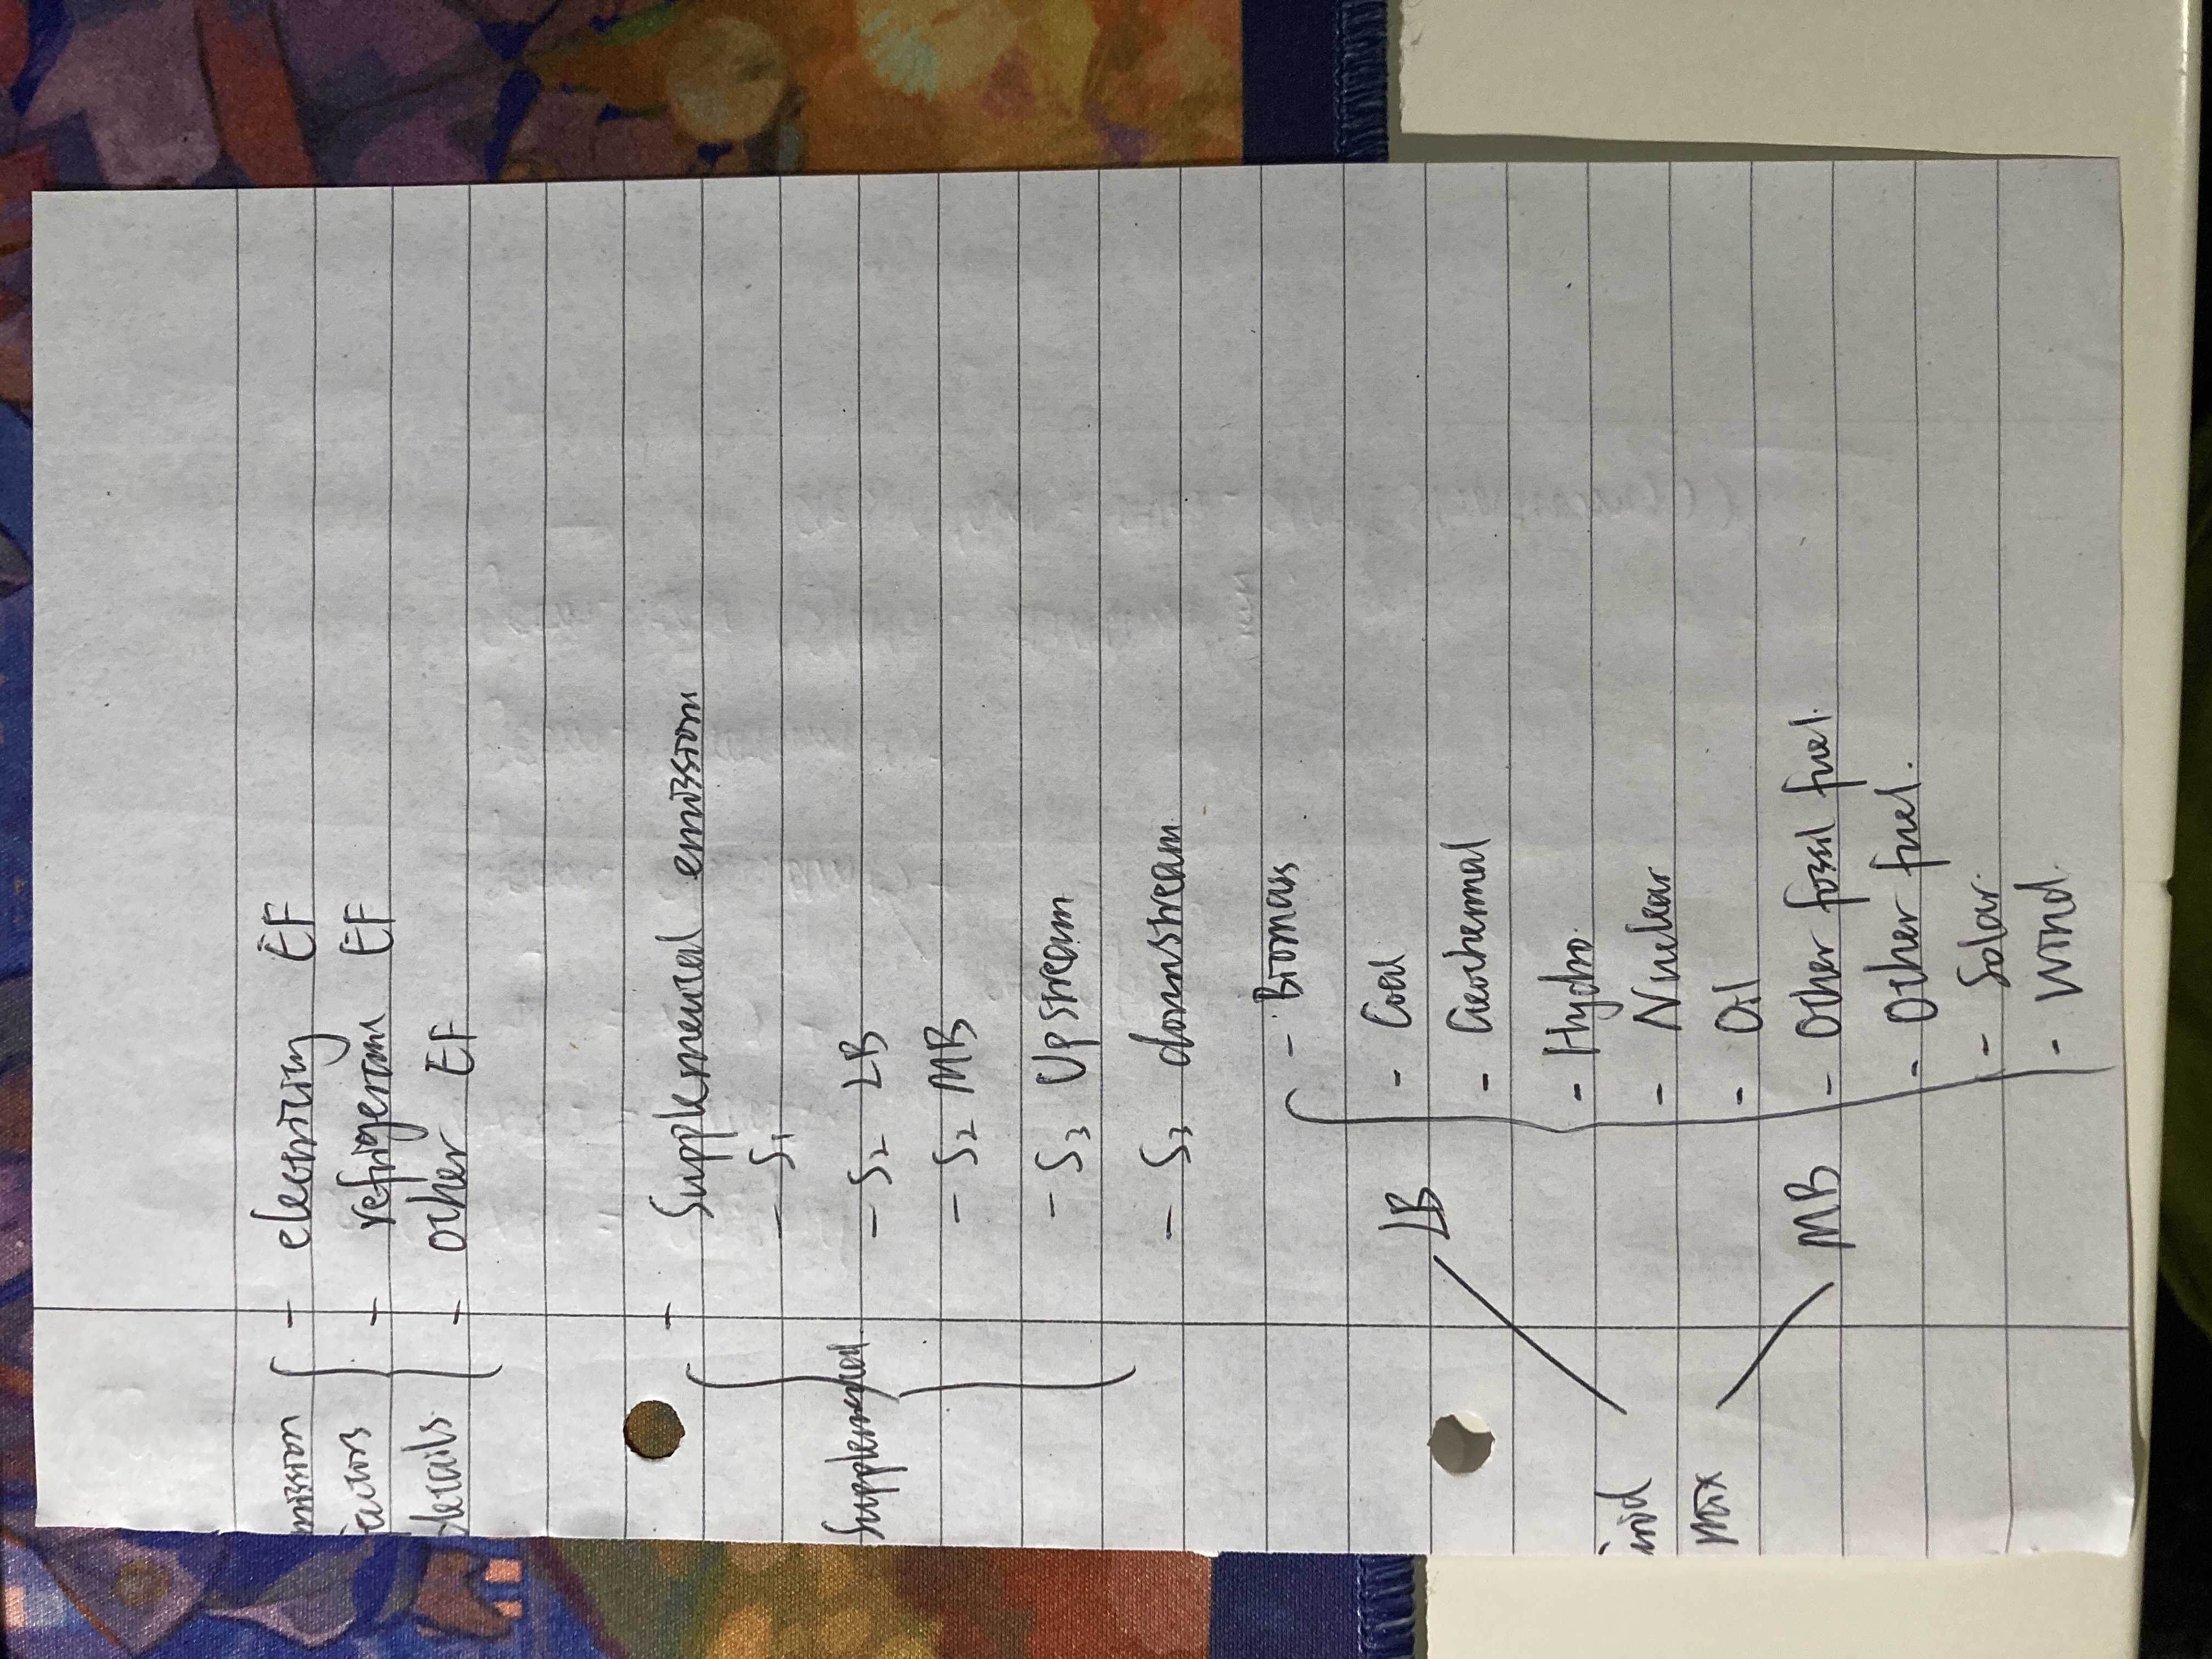 mission
factors
details.
- electricity EF
- refrigerant EF
- other EF
Supplemental.
- Supplemental emission
- S1
- S2 LB
- S2 MB
- S3 Upstream
- S3 downstream.
Grid
Mix
LB
MB
- Biomass
- Coal
- Geothermal
- Hydro.
- Nuclear
- Oil
- Other fossil fuel.
- Other fuel.
- Solar.
- Wind.